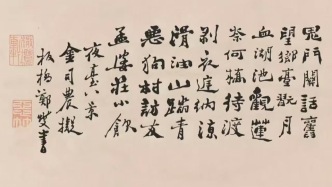 鬼門關話舊
望鄉臺翫月
血湖池觀蓮
奈何橋待渡
剝衣廷納涼
滑油山踏青
惡狗村訪友
孟婆莊小飲
夜臺八景
金司農擬
板橋鄭燮書